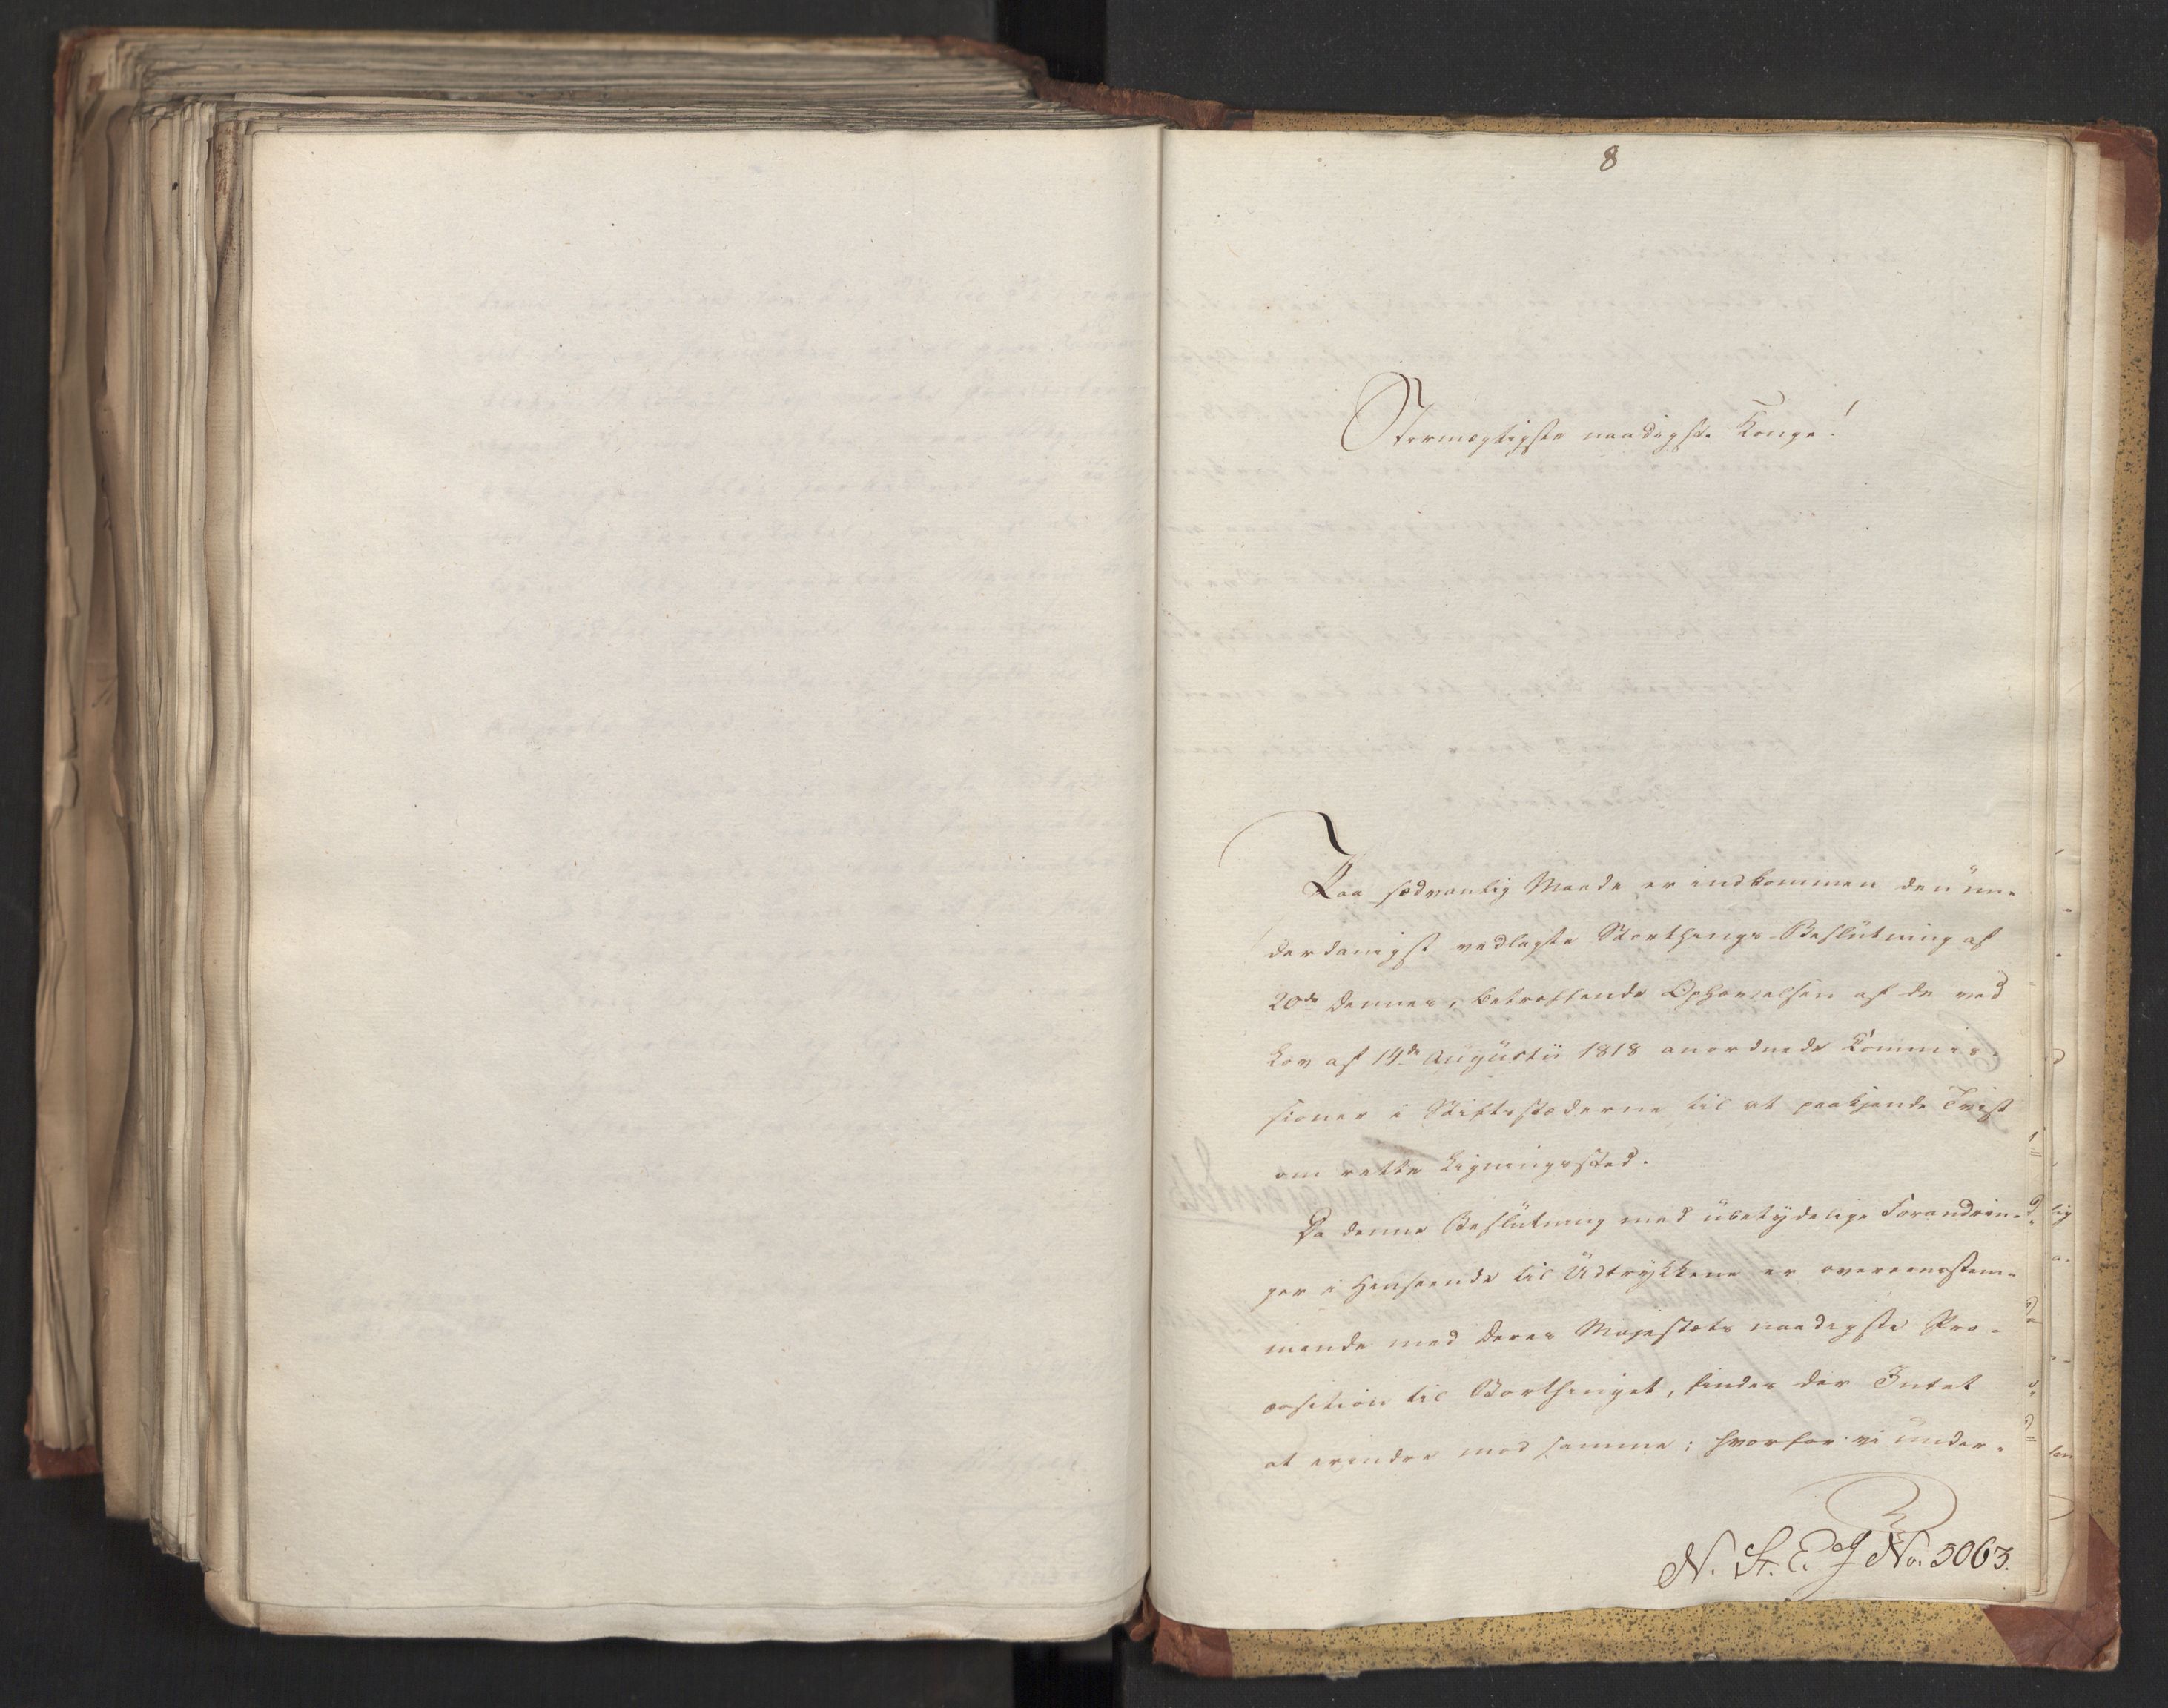 8
Stormægtigste naadigste Konge!
Paa sædvanlig Maade er indkommen den un-
derdanigst vedlagte Storthings-Beslutning af
20de dennes, betræffende Ophævelsen af de ved
Lov af 14de Augustii 1818 anordnede Commis-
sioner i Stiftsstæderne til at paakjende Tvist
om rette Ligningssted.
Da denne Beslutning med ubetydelige Forandrin-
ger i Henseende til Udtrykkene er overeensstem-
mende med Deres Majestæts naadigste Pro-
position til Storthinget, findes der Intet
at erindre mod samme; hvorfor vi under-
N. St. E. J No. 5063.